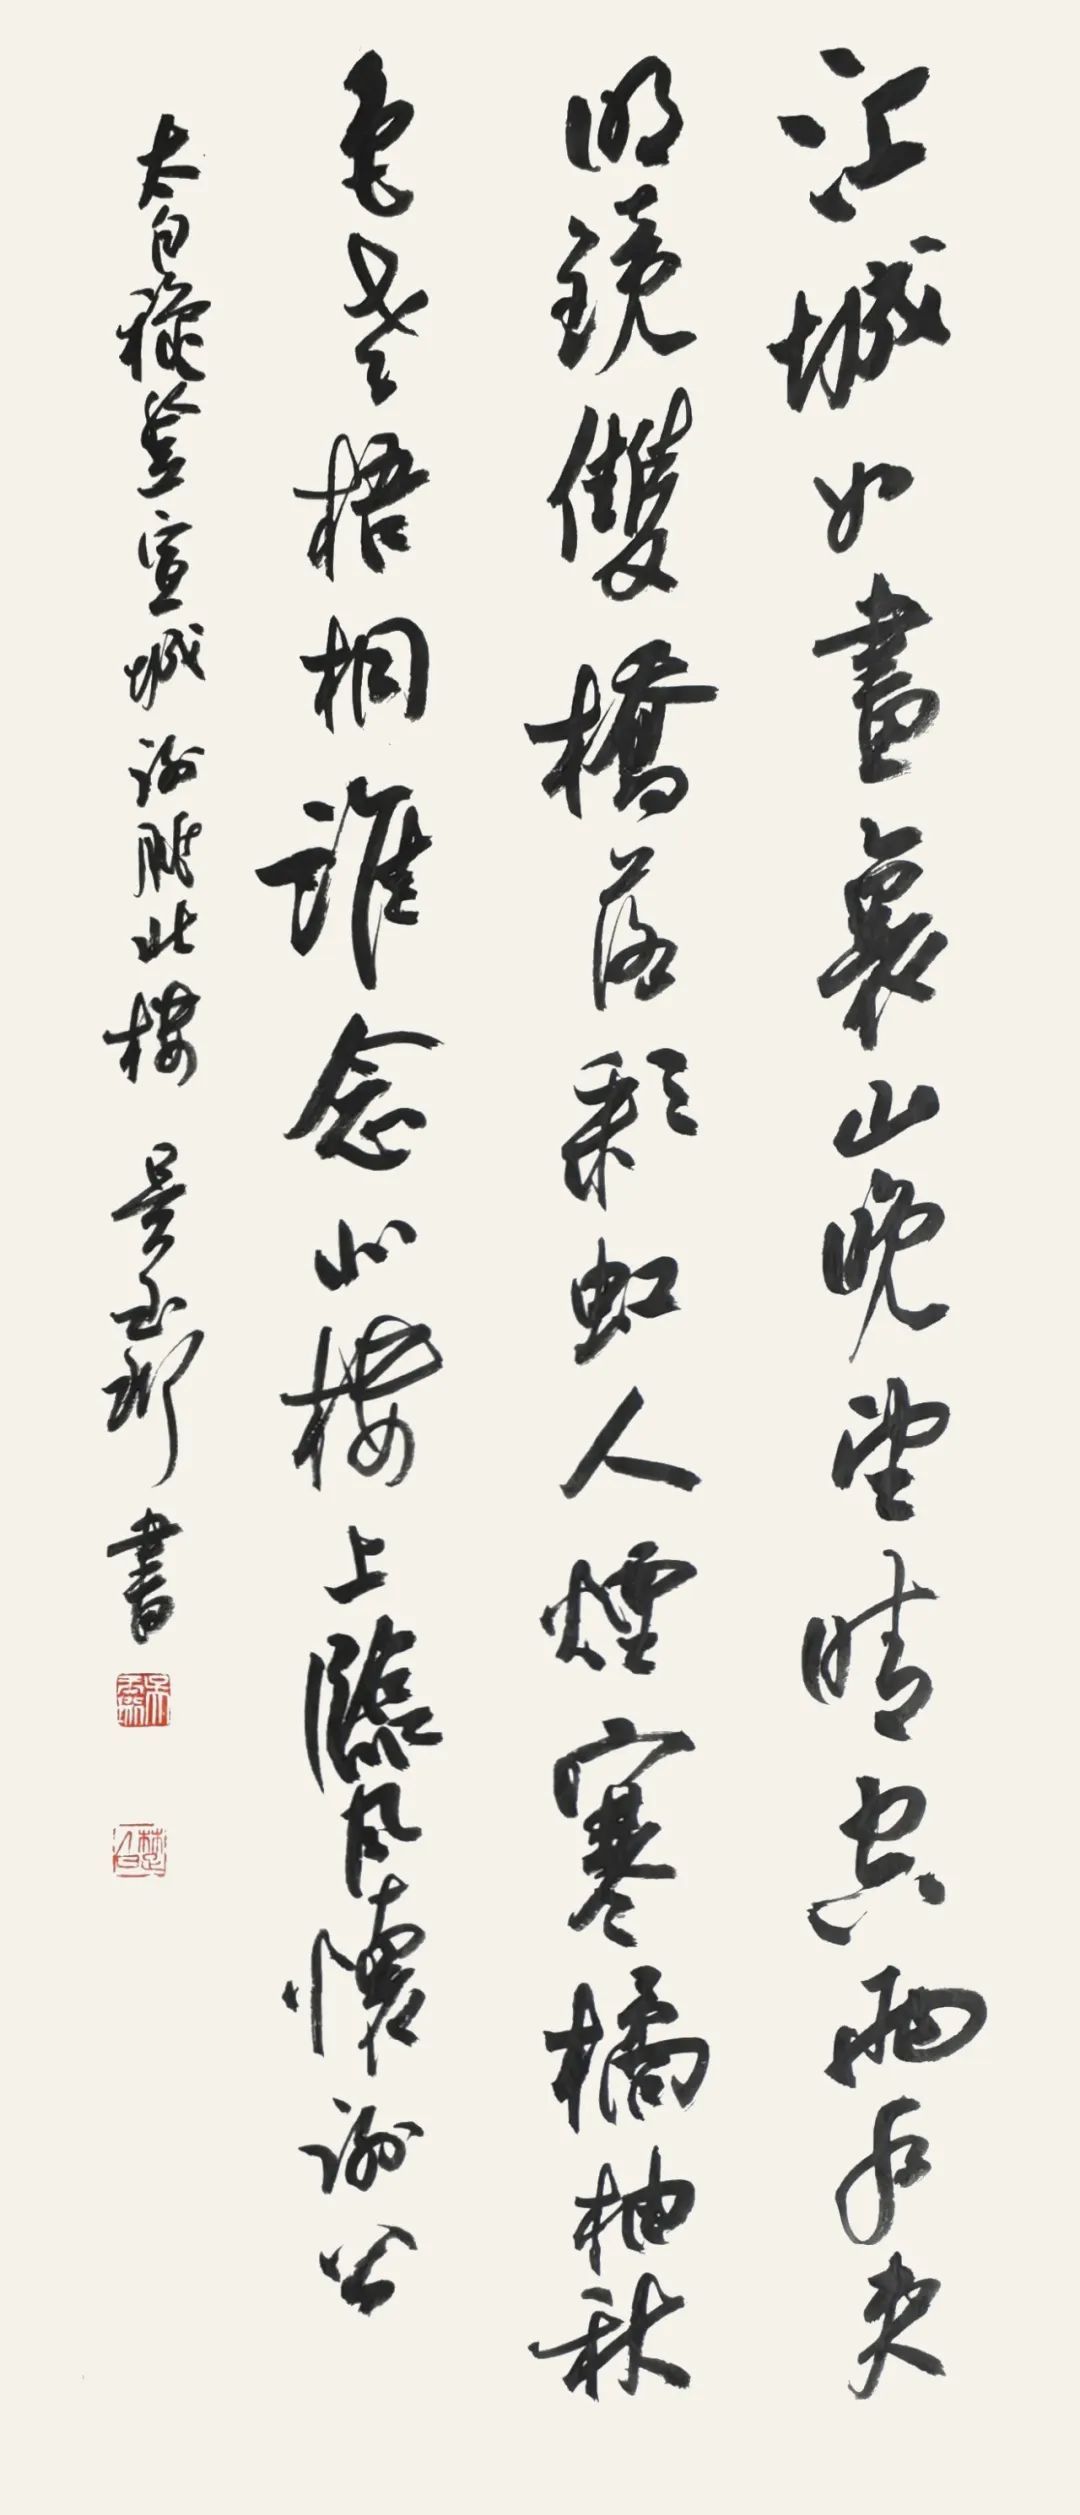 江城如畫裏山晚望晴空兩水夾
明鏡雙橋落彩虹人煙寒橘柚秋
色老梧桐誰念北樓上臨風懷謝公
太白秋登宣城謝脁北樓 書